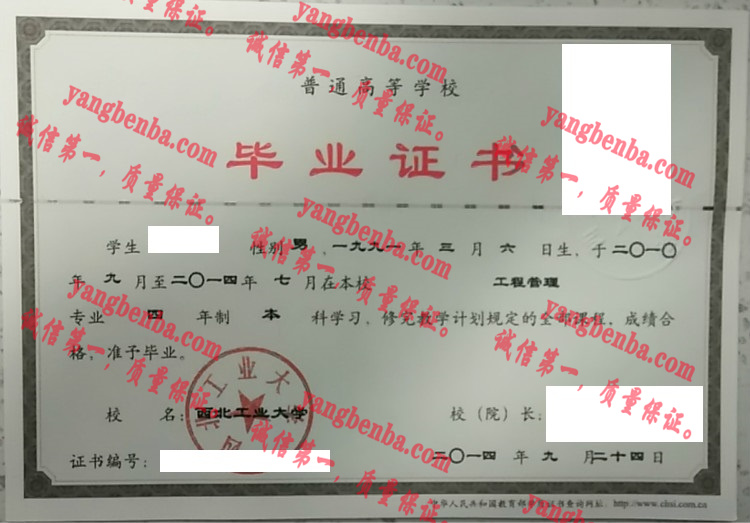 普通高等学校
毕业证书
学生 性别 男 ，一九九一 年 三 月 六 日生，于 二〇一〇
年 九 月至 二〇一四 年 七 月在本校 工程管理
专业 四 年制 本 科学习，修完教学计划规定的全部课程，成绩合
格，准予毕业。
校 名：西北工业大学
校（院）长：
证书编号：
二〇一四 年 九 月 二十四 日
中华人民共和国教育部学历证书查询网址：http://www.chsi.com.cn
yangbenba.com
诚信第一，质量保证。
yangbenba.com
诚信第一，质量保证。
yangbenba.com
诚信第一，质量保证。
yangbenba.com
诚信第一，质量保证。
yangbenba.com
诚信第一，质量保证。
yangbenba.com
诚信第一，质量保证。
yangbenba.com
诚信第一，质量保证。
yangbenba.com
诚信第一，质量保证。